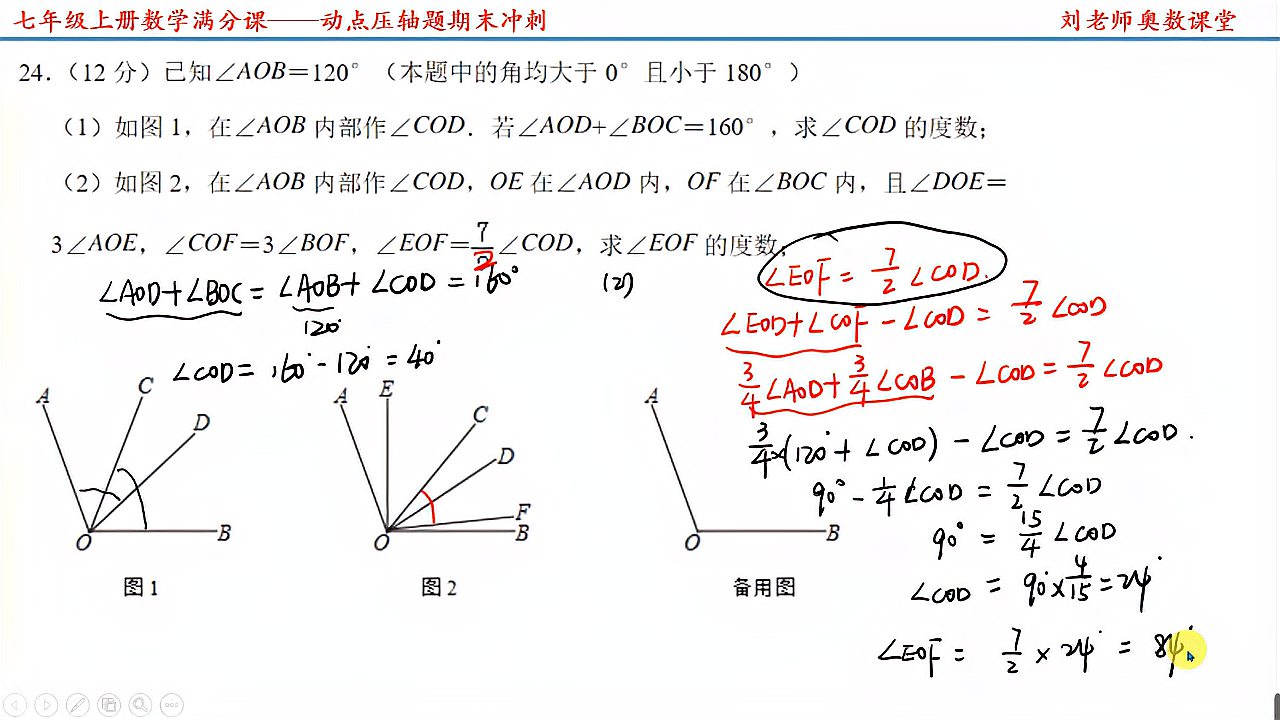 七年级上册数学满分课——动点压轴题期末冲刺
刘老师奥数课堂
24.（12 分）已知∠AOB=120°（本题中的角均大于 0°且小于 180°）
（1）如图 1，在∠AOB 内部作∠COD．若∠AOD+∠BOC=160°，求∠COD 的度数；
（2）如图 2，在∠AOB 内部作∠COD，OE 在∠AOD 内，OF 在∠BOC 内，且∠DOE=
3∠AOE，∠COF=3∠BOF，∠EOF=7/2∠COD，求∠EOF 的度数；
∠AOD+∠BOC = ∠AOB+ ∠COD = 160°
120°
∠COD = 160° - 120° = 40°
(2)
∠EOF = 7/2 ∠COD.
∠EOD+∠COF - ∠COD = 7/2 ∠COD
3/4 ∠AOD + 3/4 ∠COB - ∠COD = 7/2 ∠COD
3/4×(120° + ∠COD) - ∠COD = 7/2 ∠COD.
90° - 1/4 ∠COD = 7/2 ∠COD
90° = 15/4 ∠COD
∠COD = 90°×4/15 = 24°
∠EOF = 7/2 × 24° = 84°
A
C
D
O
B
图 1
A
E
C
D
F
O
B
图 2
A
O
B
备用图